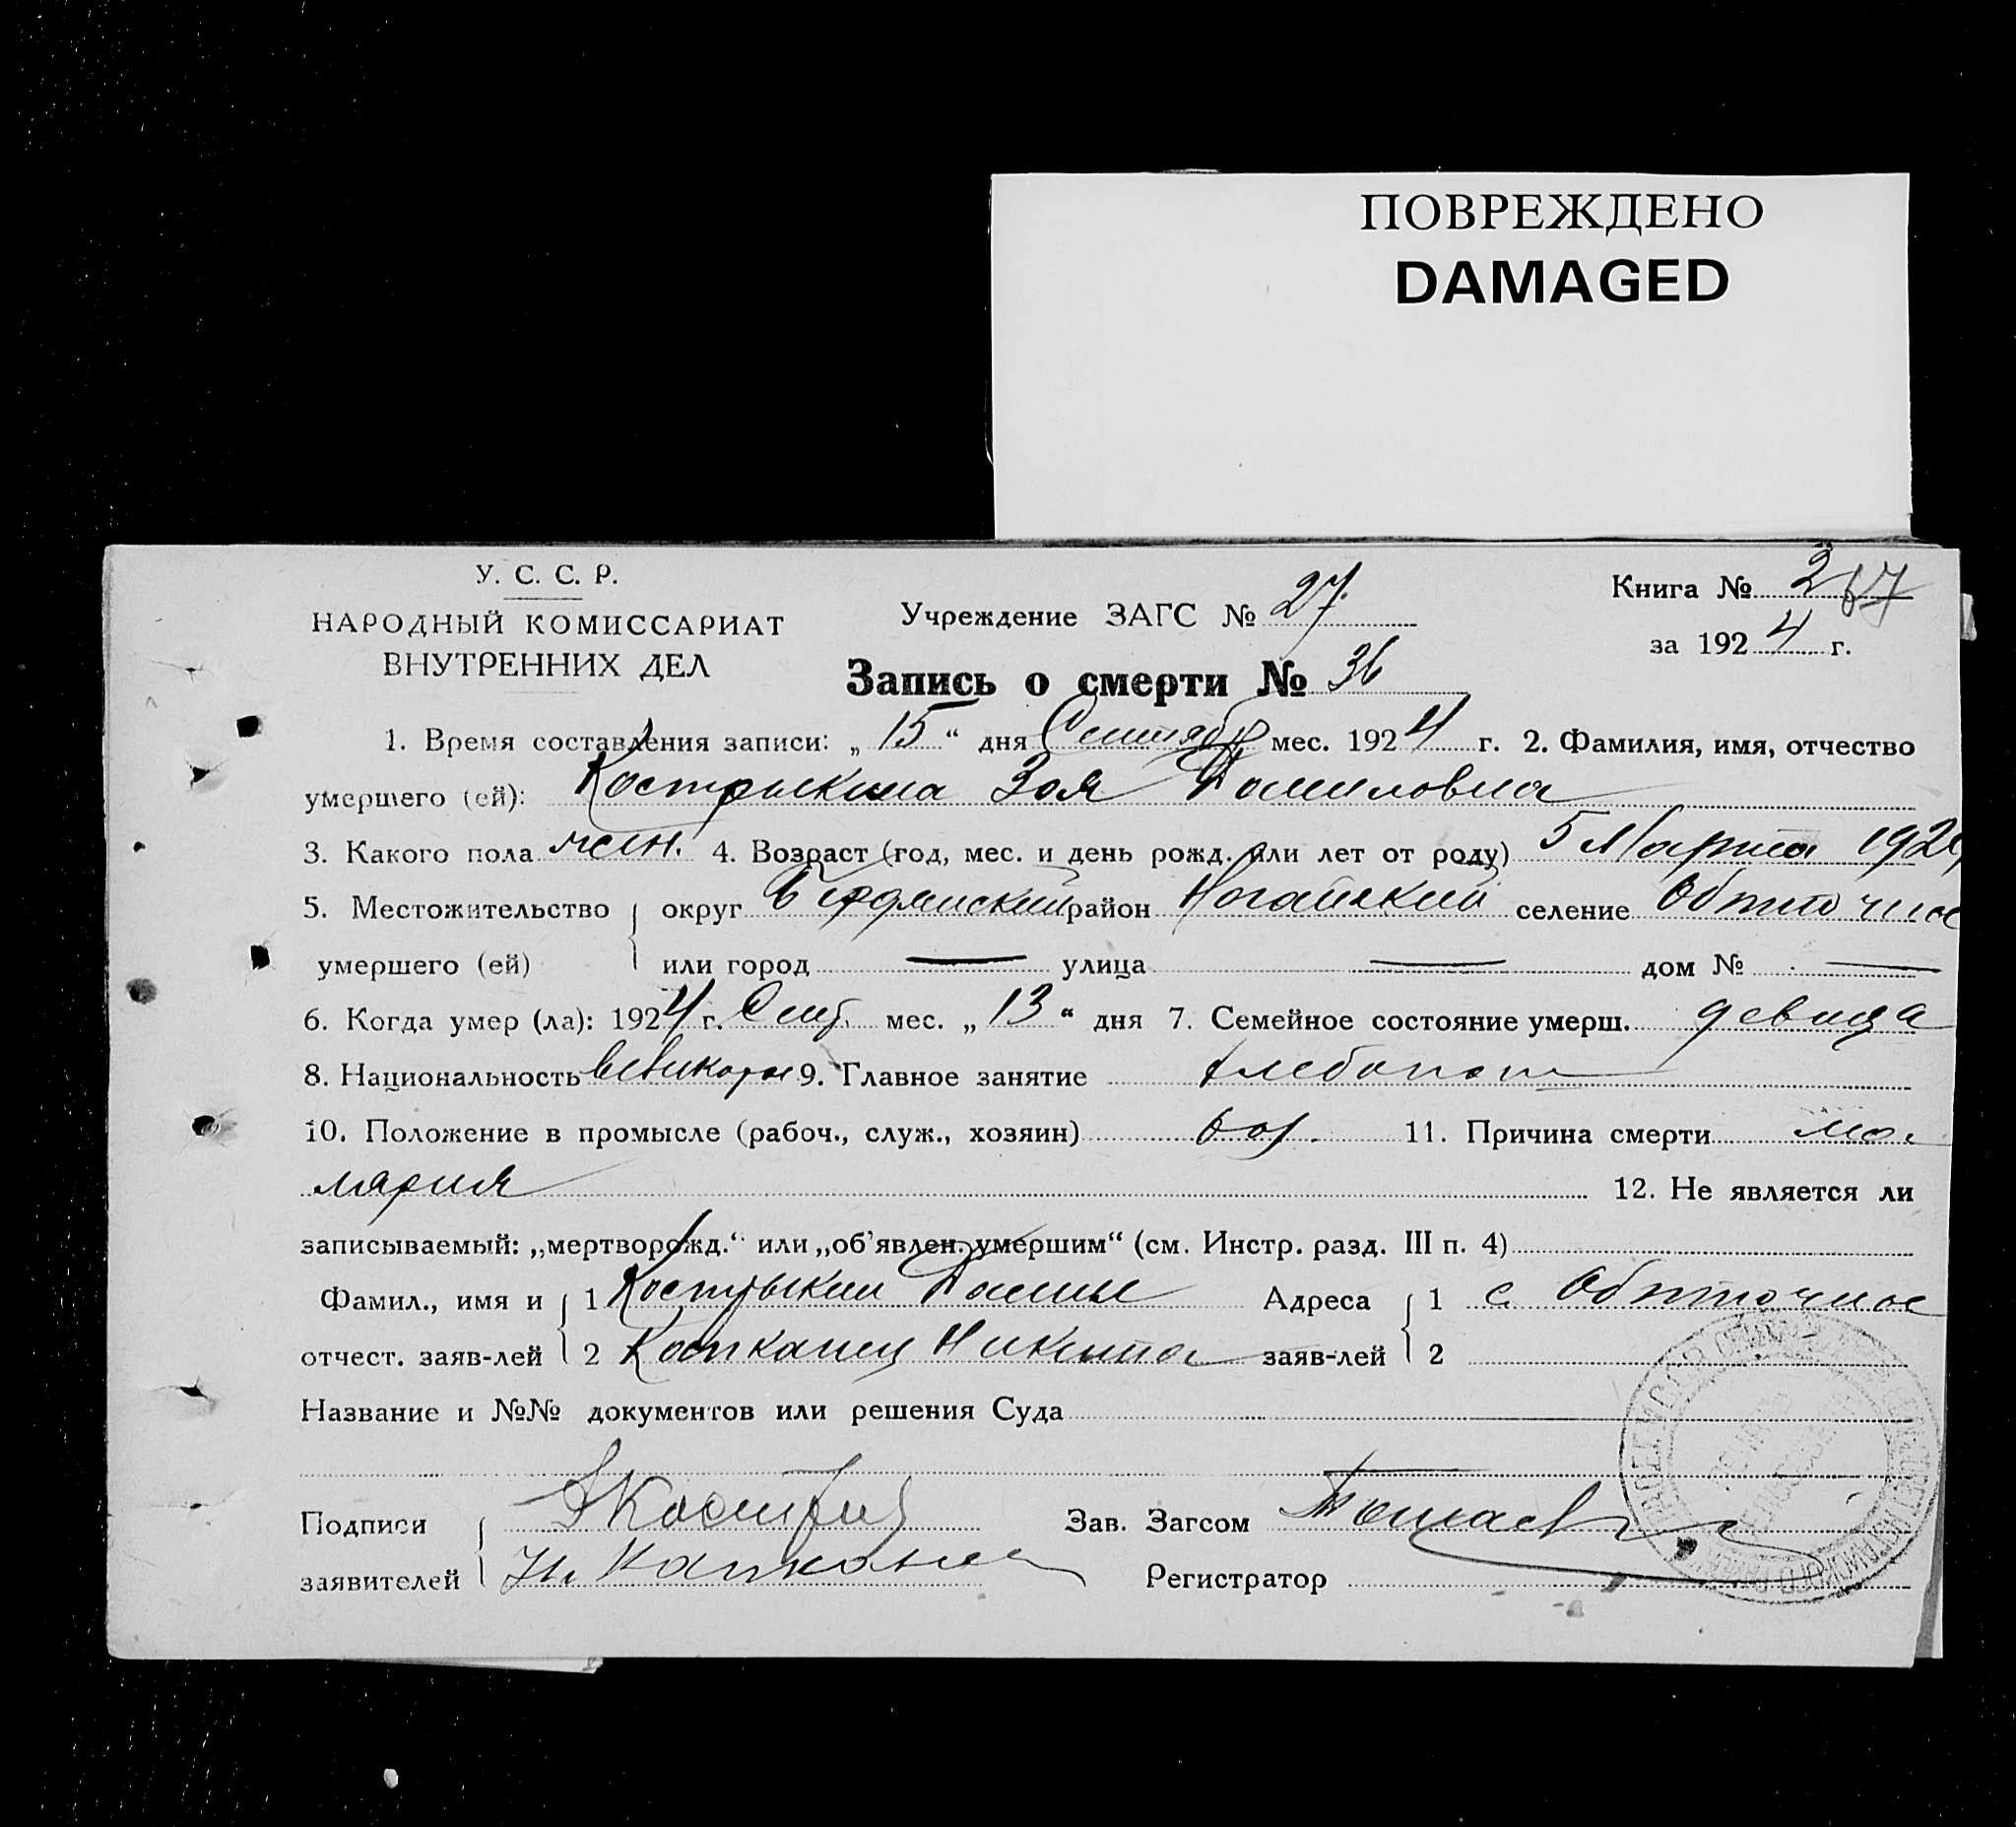 ПОВРЕЖДЕНО
DAMAGED
У. С. С. Р.
НАРОДНЫЙ КОМИССАРИАТ
ВНУТРЕННИХ ДЕЛ
Учреждение ЗАГС № 27.
Книга № 2 67
за 1924 г.
Запись о смерти № 36
1. Время составления записи: „15“ дня Сентябр мес. 1924 г. 2. Фамилия, имя, отчество
умершего (ей): Кострыкина Зоя Даниловна
3. Какого пола жен. 4. Возраст (год, мес. и день рожд. или лет от роду) 5 Марта 192
5. Местожительство округ Бердянский район Ногайский селение Обиточное
умершего (ей) или город — улица — дом № —
6. Когда умер (ла): 1924 г. Сент. мес. „13“ дня 7. Семейное состояние умерш. девица
8. Национальность 9. Главное занятие хлебопаш
10. Положение в промысле (рабоч., служ., хозяин) 11. Причина смерти ма-
лярия 12. Не является ли
записываемый: „мертворожд.“ или „об’явлен. умершим“ (см. Инстр. разд. III п. 4)
Фамил., имя и 1 Кострыкин Данил Адреса 1 с. Обиточное
отчест. заяв-лей 2 Никита заяв-лей 2
Название и №№ документов или решения Суда
Подписи Зав. Загсом
заявителей Регистратор